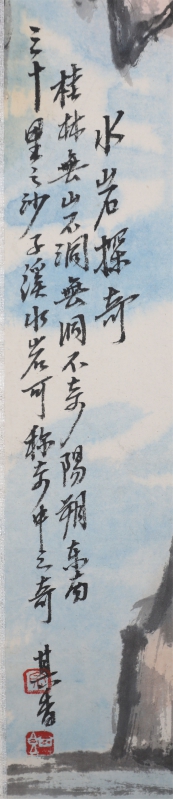 水岩探奇
桂林無山不洞無洞不奇陽朔东南
三十里之沙子溪水岩可称奇中之奇
其香